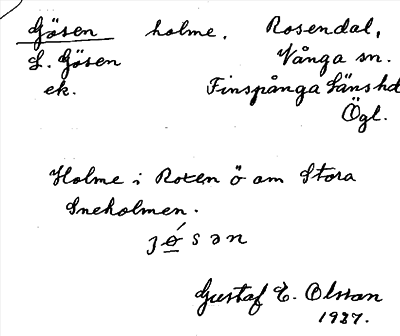 Gösen holme, Rosendal,
L. Gösen Vånga sn.
ek. Finspånga länshd
Ögl.
Holme i Roxen ö om Stora
Sneholmen.
jǿsən
Gustaf E. Olsson
1937.